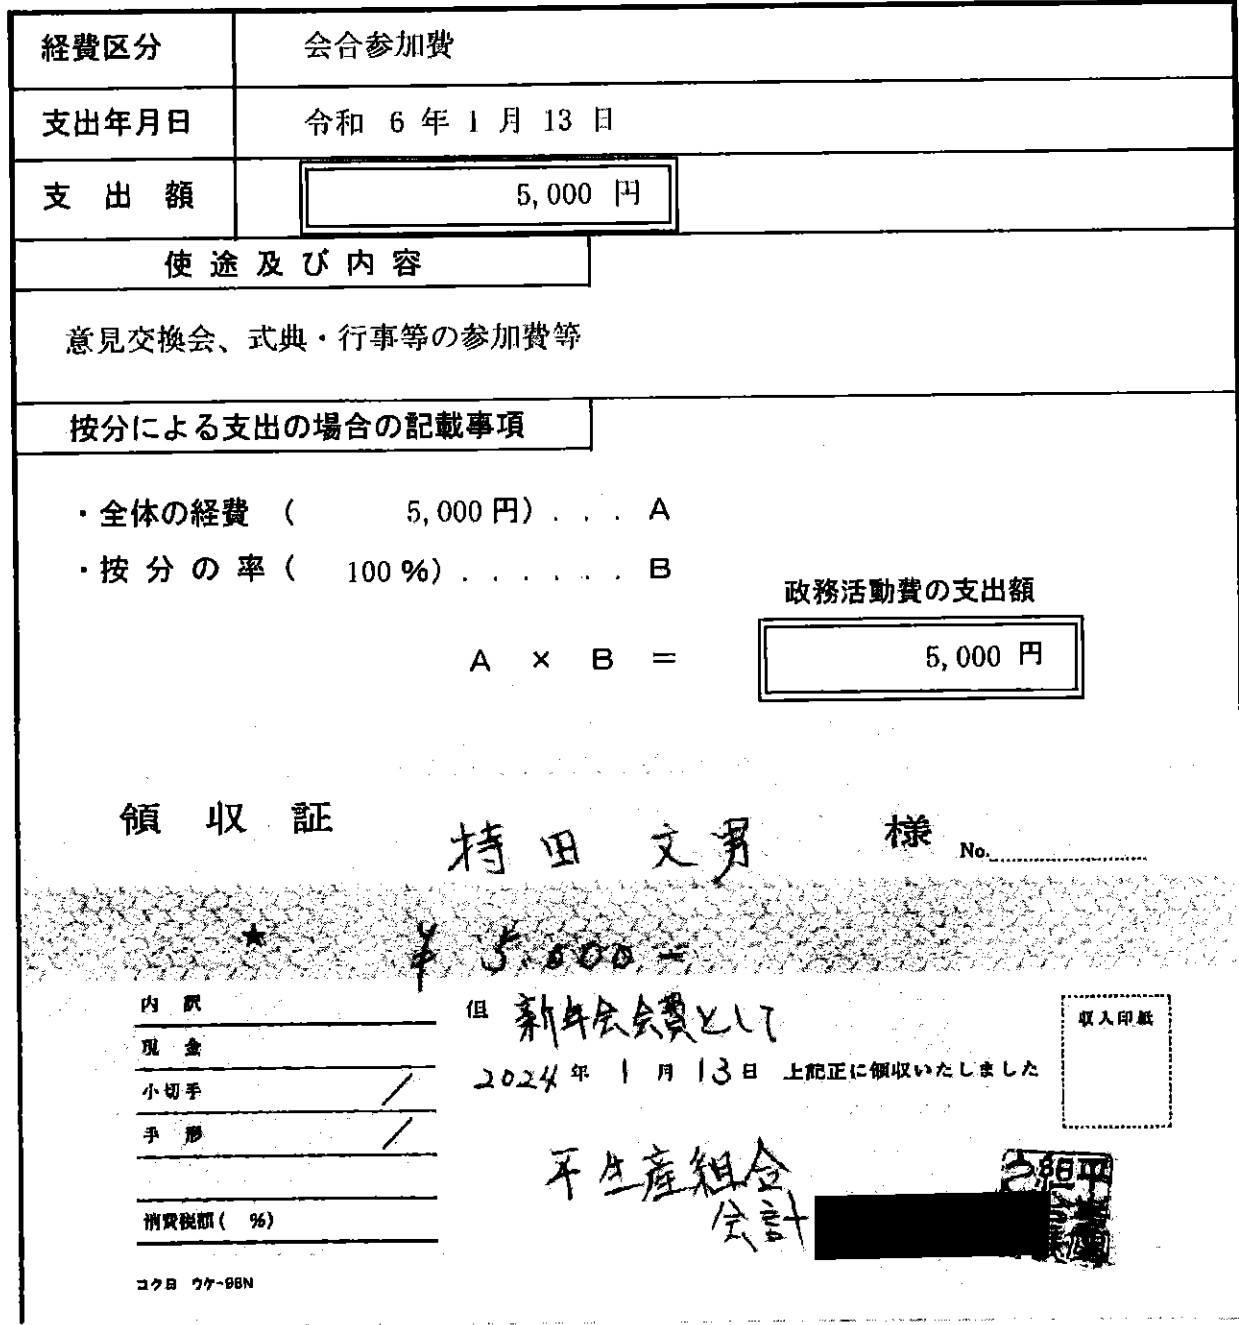 経費区分 会合参加費
支出年月日 令和 6 年 1 月 13 日
支出額 5,000 円
使途及び内容
意見交換会、式典・行事等の参加費等
按分による支出の場合の記載事項
・全体の経費 ( 5,000 円) . . . A
・按分の率 ( 100 %) . . . . . . B
政務活動費の支出額
A × B = 5,000 円
領収証 持田 文男 様 No.
★ ¥ 5,000-
内訳
但 新年会会費として
収入印紙
現金
2024 年 1 月 13 日 上記正に領収いたしました
小切手 /
手形 /
平生産組合
会計
消費税額( %)
コクヨ ウケ-98N